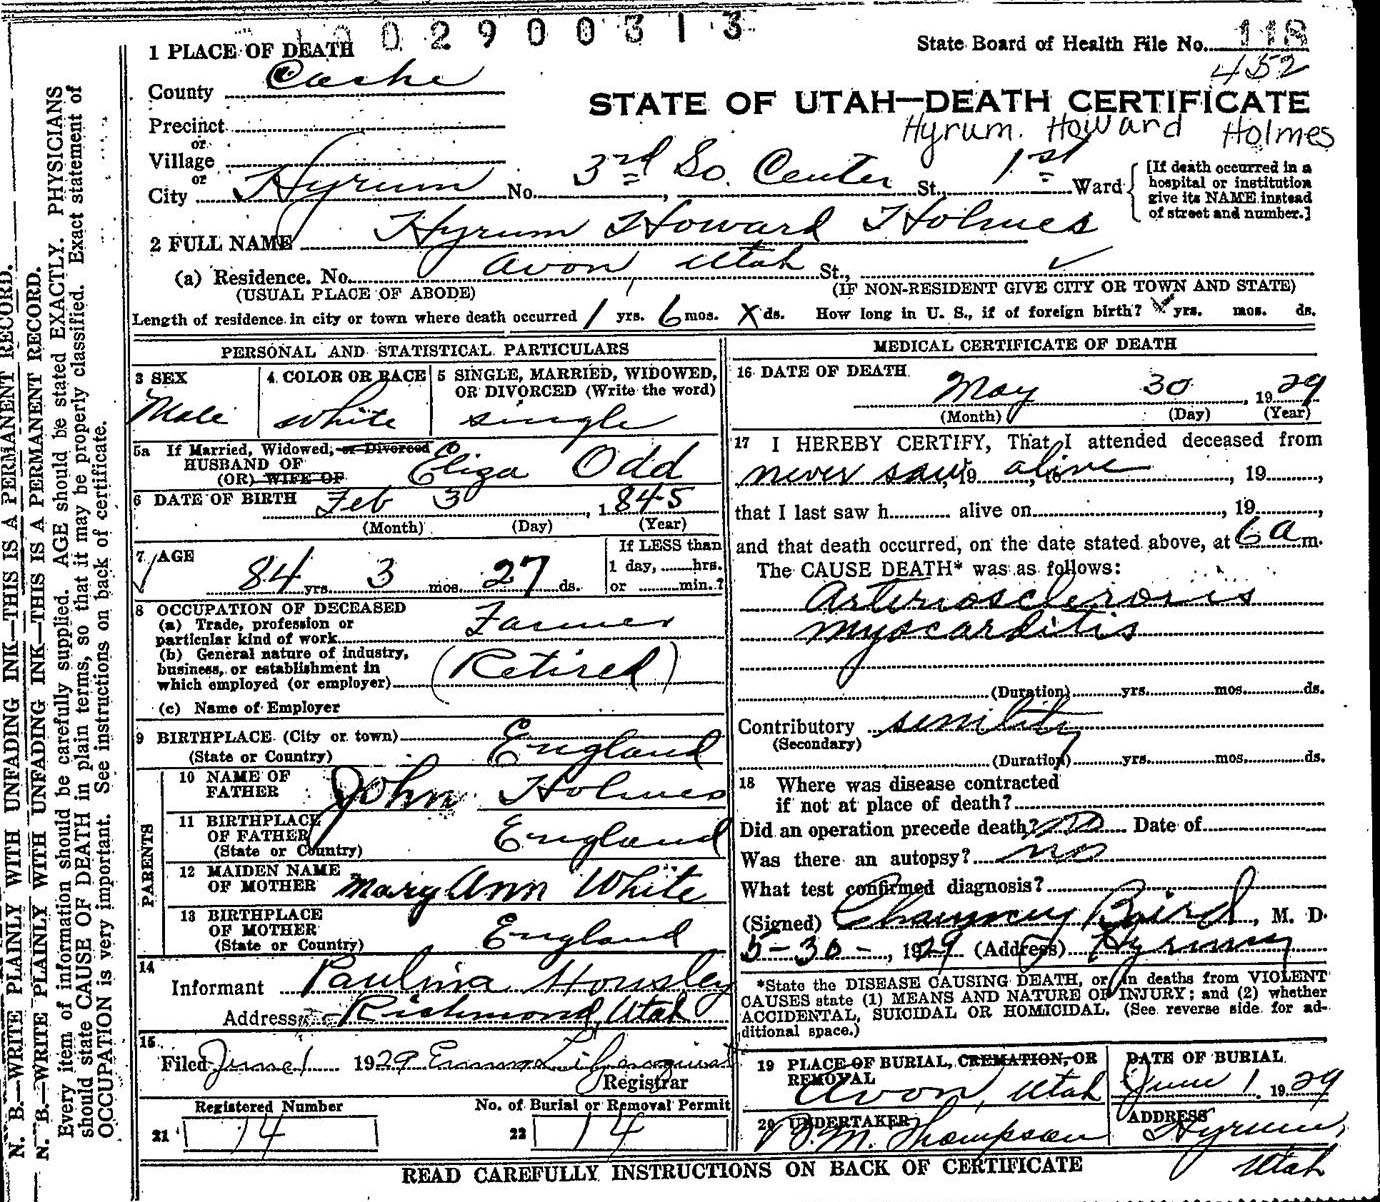 0 0 2 9 0 0 3 1 3
1 PLACE OF DEATH
State Board of Health File No. 118
452
County Cache
STATE OF UTAH—DEATH CERTIFICATE
Precinct
or
Hyrum Howard Holmes
Village
or
City Hyrum No. 3rd So. Center St., 1st Ward
[If death occurred in a hospital or institution give its NAME instead of street and number.]
2 FULL NAME Hyrum Howard Holmes
(a) Residence. No. Avon, Utah St.,
(USUAL PLACE OF ABODE) (IF NON-RESIDENT GIVE CITY OR TOWN AND STATE)
Length of residence in city or town where death occurred 1 yrs. 6 mos. X ds. How long in U. S., if of foreign birth? yrs. mos. ds.
PERSONAL AND STATISTICAL PARTICULARS
3 SEX
Male
4 COLOR OR RACE
white
5 SINGLE, MARRIED, WIDOWED,
OR DIVORCED (Write the word)
single
5a If Married, Widowed, or Divorced
HUSBAND OF
(OR) WIFE OF Eliza Odd
6 DATE OF BIRTH Feb 3, 1845
(Month) (Day) (Year)
7 AGE
84 yrs. 3 mos. 27 ds.
If LESS than
1 day, hrs.
or min.?
8 OCCUPATION OF DECEASED
(a) Trade, profession or
particular kind of work Farmer
(b) General nature of industry,
business, or establishment in
which employed (or employer) (Retired)
(c) Name of Employer
9 BIRTHPLACE (City or town)
(State or Country) England
PARENTS
10 NAME OF
FATHER John Holmes
11 BIRTHPLACE
OF FATHER
(State or Country) England
12 MAIDEN NAME
OF MOTHER Mary Ann White
13 BIRTHPLACE
OF MOTHER
(State or Country) England
14
Informant Paulina Housley
Address Richmond, Utah
15
Filed June 1 1929 Emma
Registrar
Registered Number
21 14
No. of Burial or Removal Permit
22 14
MEDICAL CERTIFICATE OF DEATH
16 DATE OF DEATH
May 30, 1929
(Month) (Day) (Year)
17 I HEREBY CERTIFY, That I attended deceased from
never saw, 19 alive, 19,
that I last saw h alive on, 19,
and that death occurred, on the date stated above, at 6 a m.
The CAUSE DEATH* was as follows:
Arteriosclerosis
myocarditis
(Duration) yrs. mos. ds.
Contributory senility
(Secondary)
(Duration) yrs. mos. ds.
18 Where was disease contracted
if not at place of death?
Did an operation precede death? no Date of
Was there an autopsy? no
What test confirmed diagnosis?
(Signed) Chauncey Baird, M. D.
5-30-, 1929 (Address) Hyrum
*State the DISEASE CAUSING DEATH, or in deaths from VIOLENT
CAUSES state (1) MEANS AND NATURE OF INJURY; and (2) whether
ACCIDENTAL, SUICIDAL OR HOMICIDAL. (See reverse side for ad-
ditional space.)
19 PLACE OF BURIAL, CREMATION, OR
REMOVAL
Avon, Utah
DATE OF BURIAL
June 1, 1929
20 UNDERTAKER
M. Thompson
ADDRESS
Hyrum,
Utah
READ CAREFULLY INSTRUCTIONS ON BACK OF CERTIFICATE
N. B.—WRITE PLAINLY WITH UNFADING INK—THIS IS A PERMANENT RECORD.
N. B.—WRITE PLAINLY WITH UNFADING INK—THIS IS A PERMANENT RECORD.
Every item of information should be carefully supplied. AGE should be stated EXACTLY. PHYSICIANS
should state CAUSE OF DEATH in plain terms, so that it may be properly classified. Exact statement of
OCCUPATION is very important. See instructions on back of certificate.